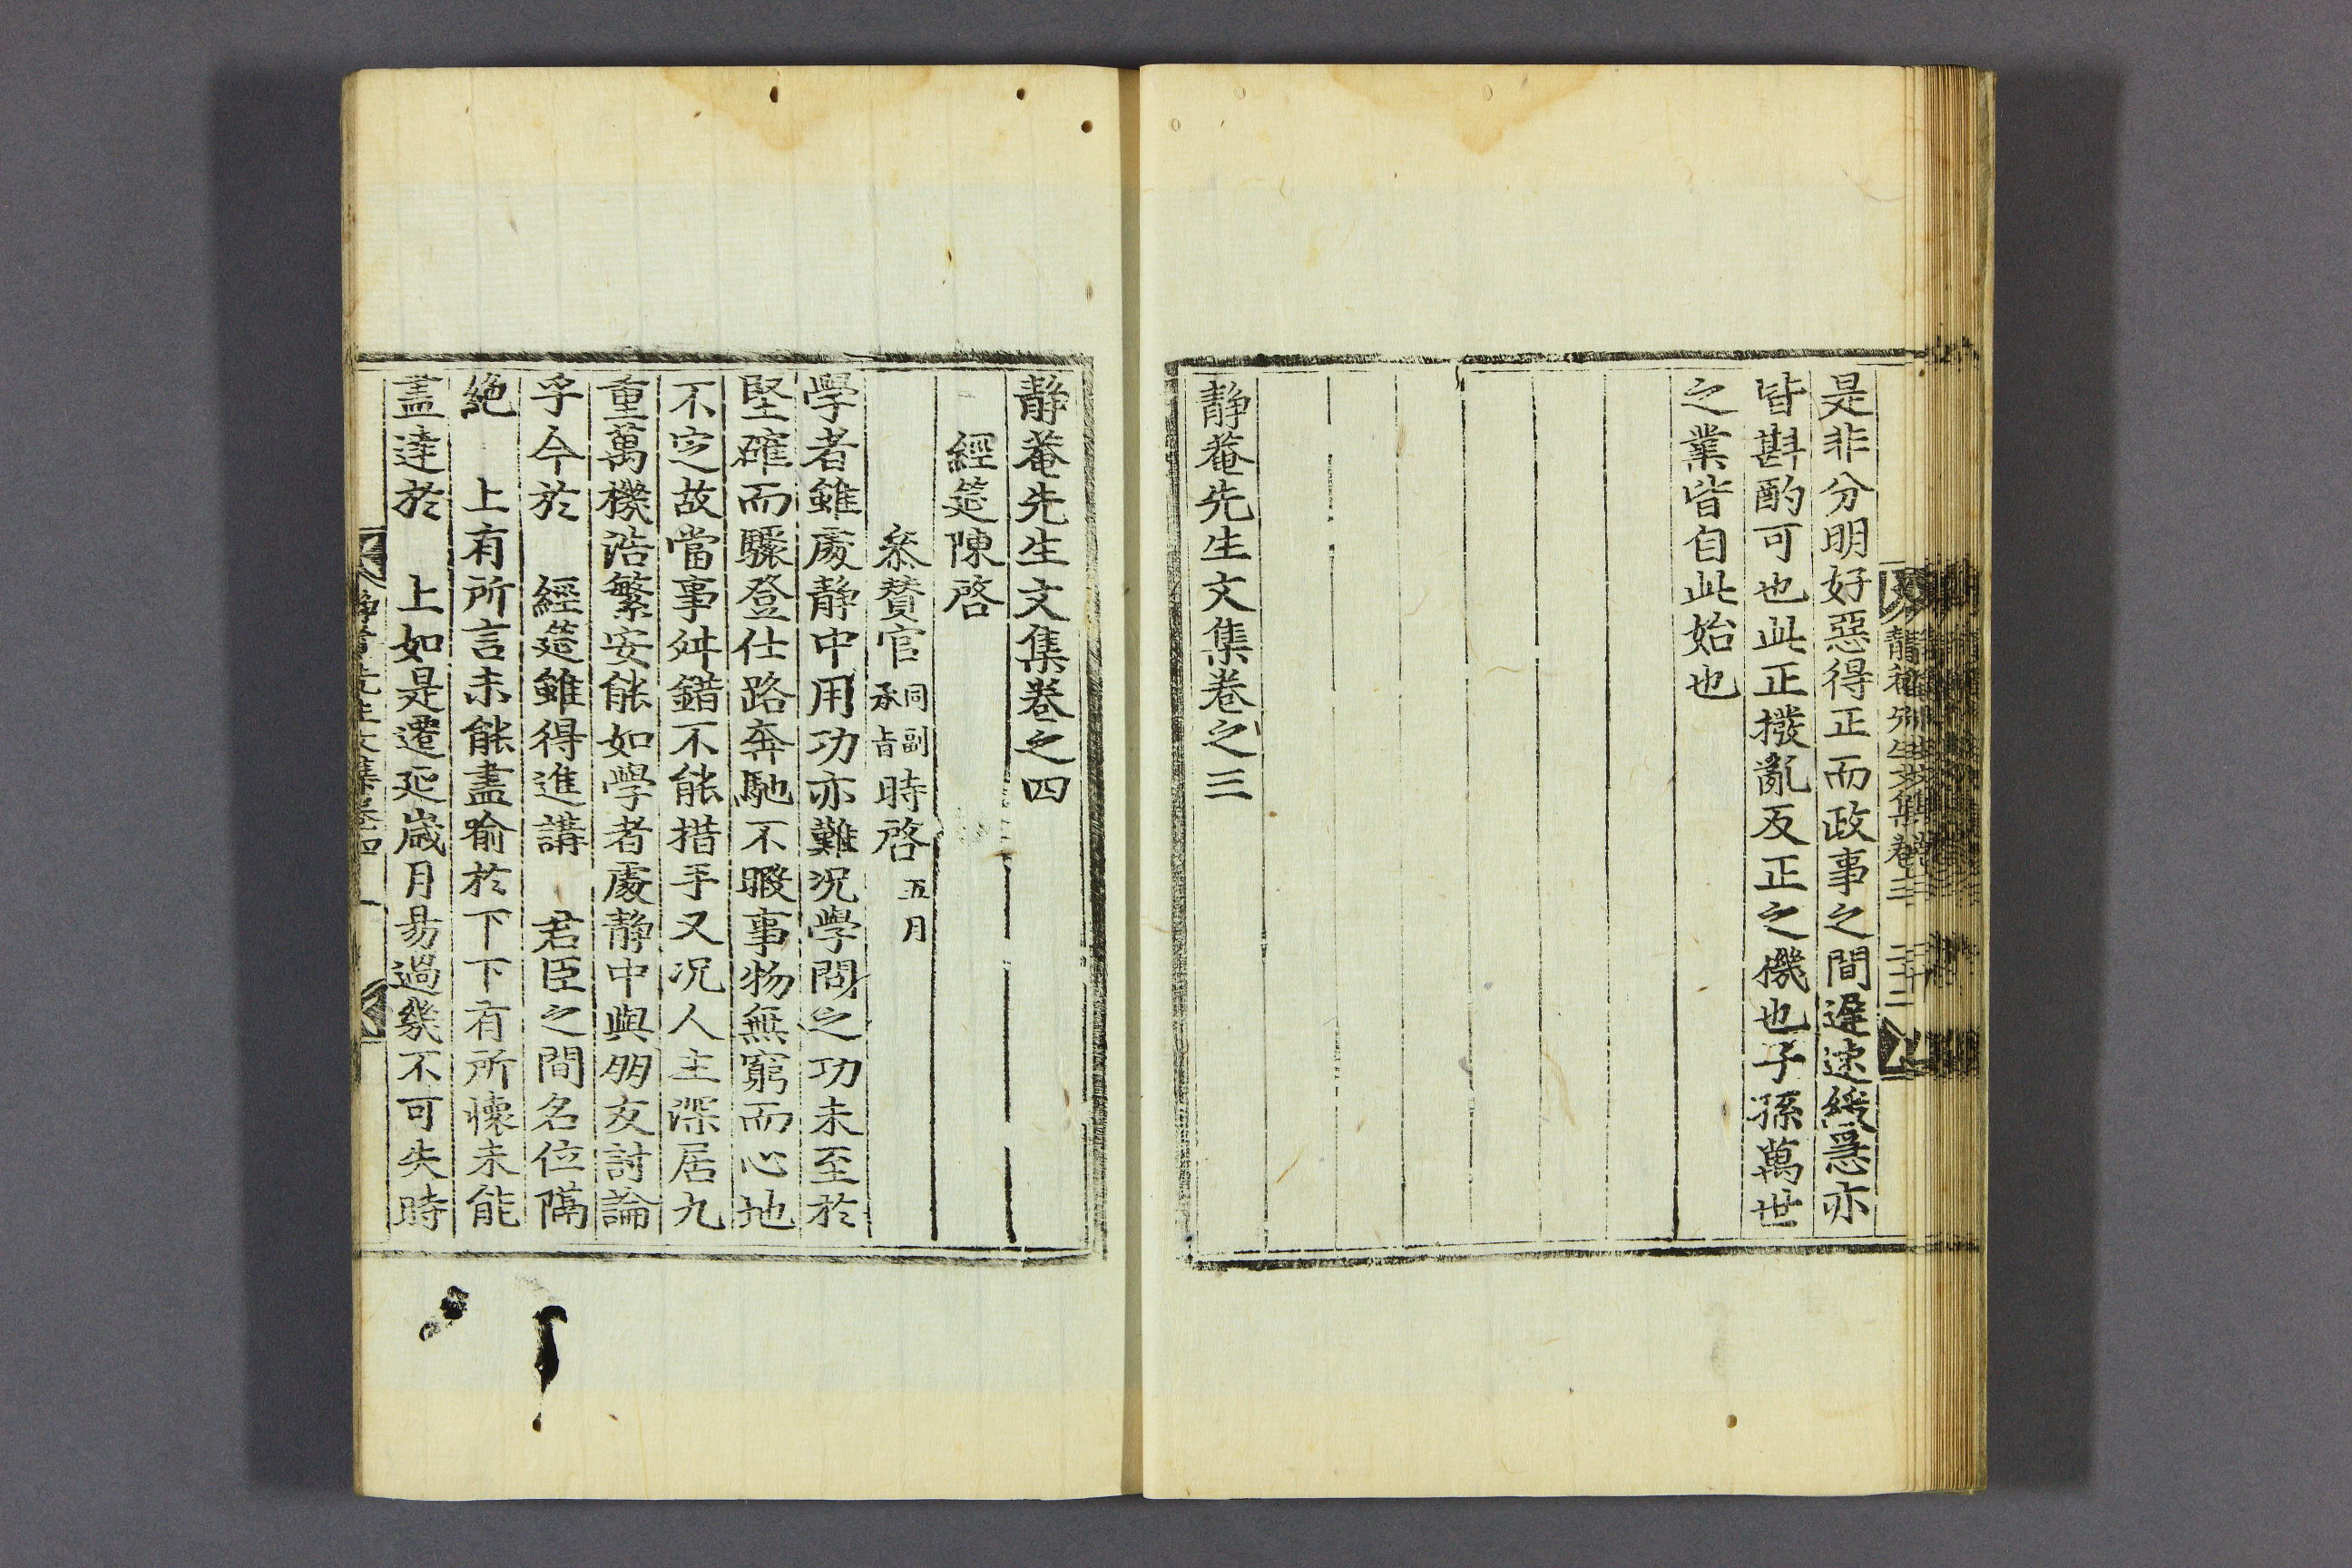 是非分明好惡得正而政事之間遲速緩急亦
皆斟酌可也此正撥亂反正之機也子孫萬世
之業皆自此始也
靜菴先生文集卷之三
靜菴先生文集卷之四
經筵陳啓
叅賛官同副承旨時啓五月
學者雖處靜中用功亦難況學問之功未至於
堅確而驟登仕路奔馳不暇事物無窮而心地
不定故當事舛錯不能措手又況人主深居九
重萬機浩繁安能如學者處靜中與朋友討論
乎今於 經筵雖得進講 君臣之間名位隔
絶 上有所言未能盡喻於下下有所懷未能
盡達於 上如是遷延歲月易過幾不可失時